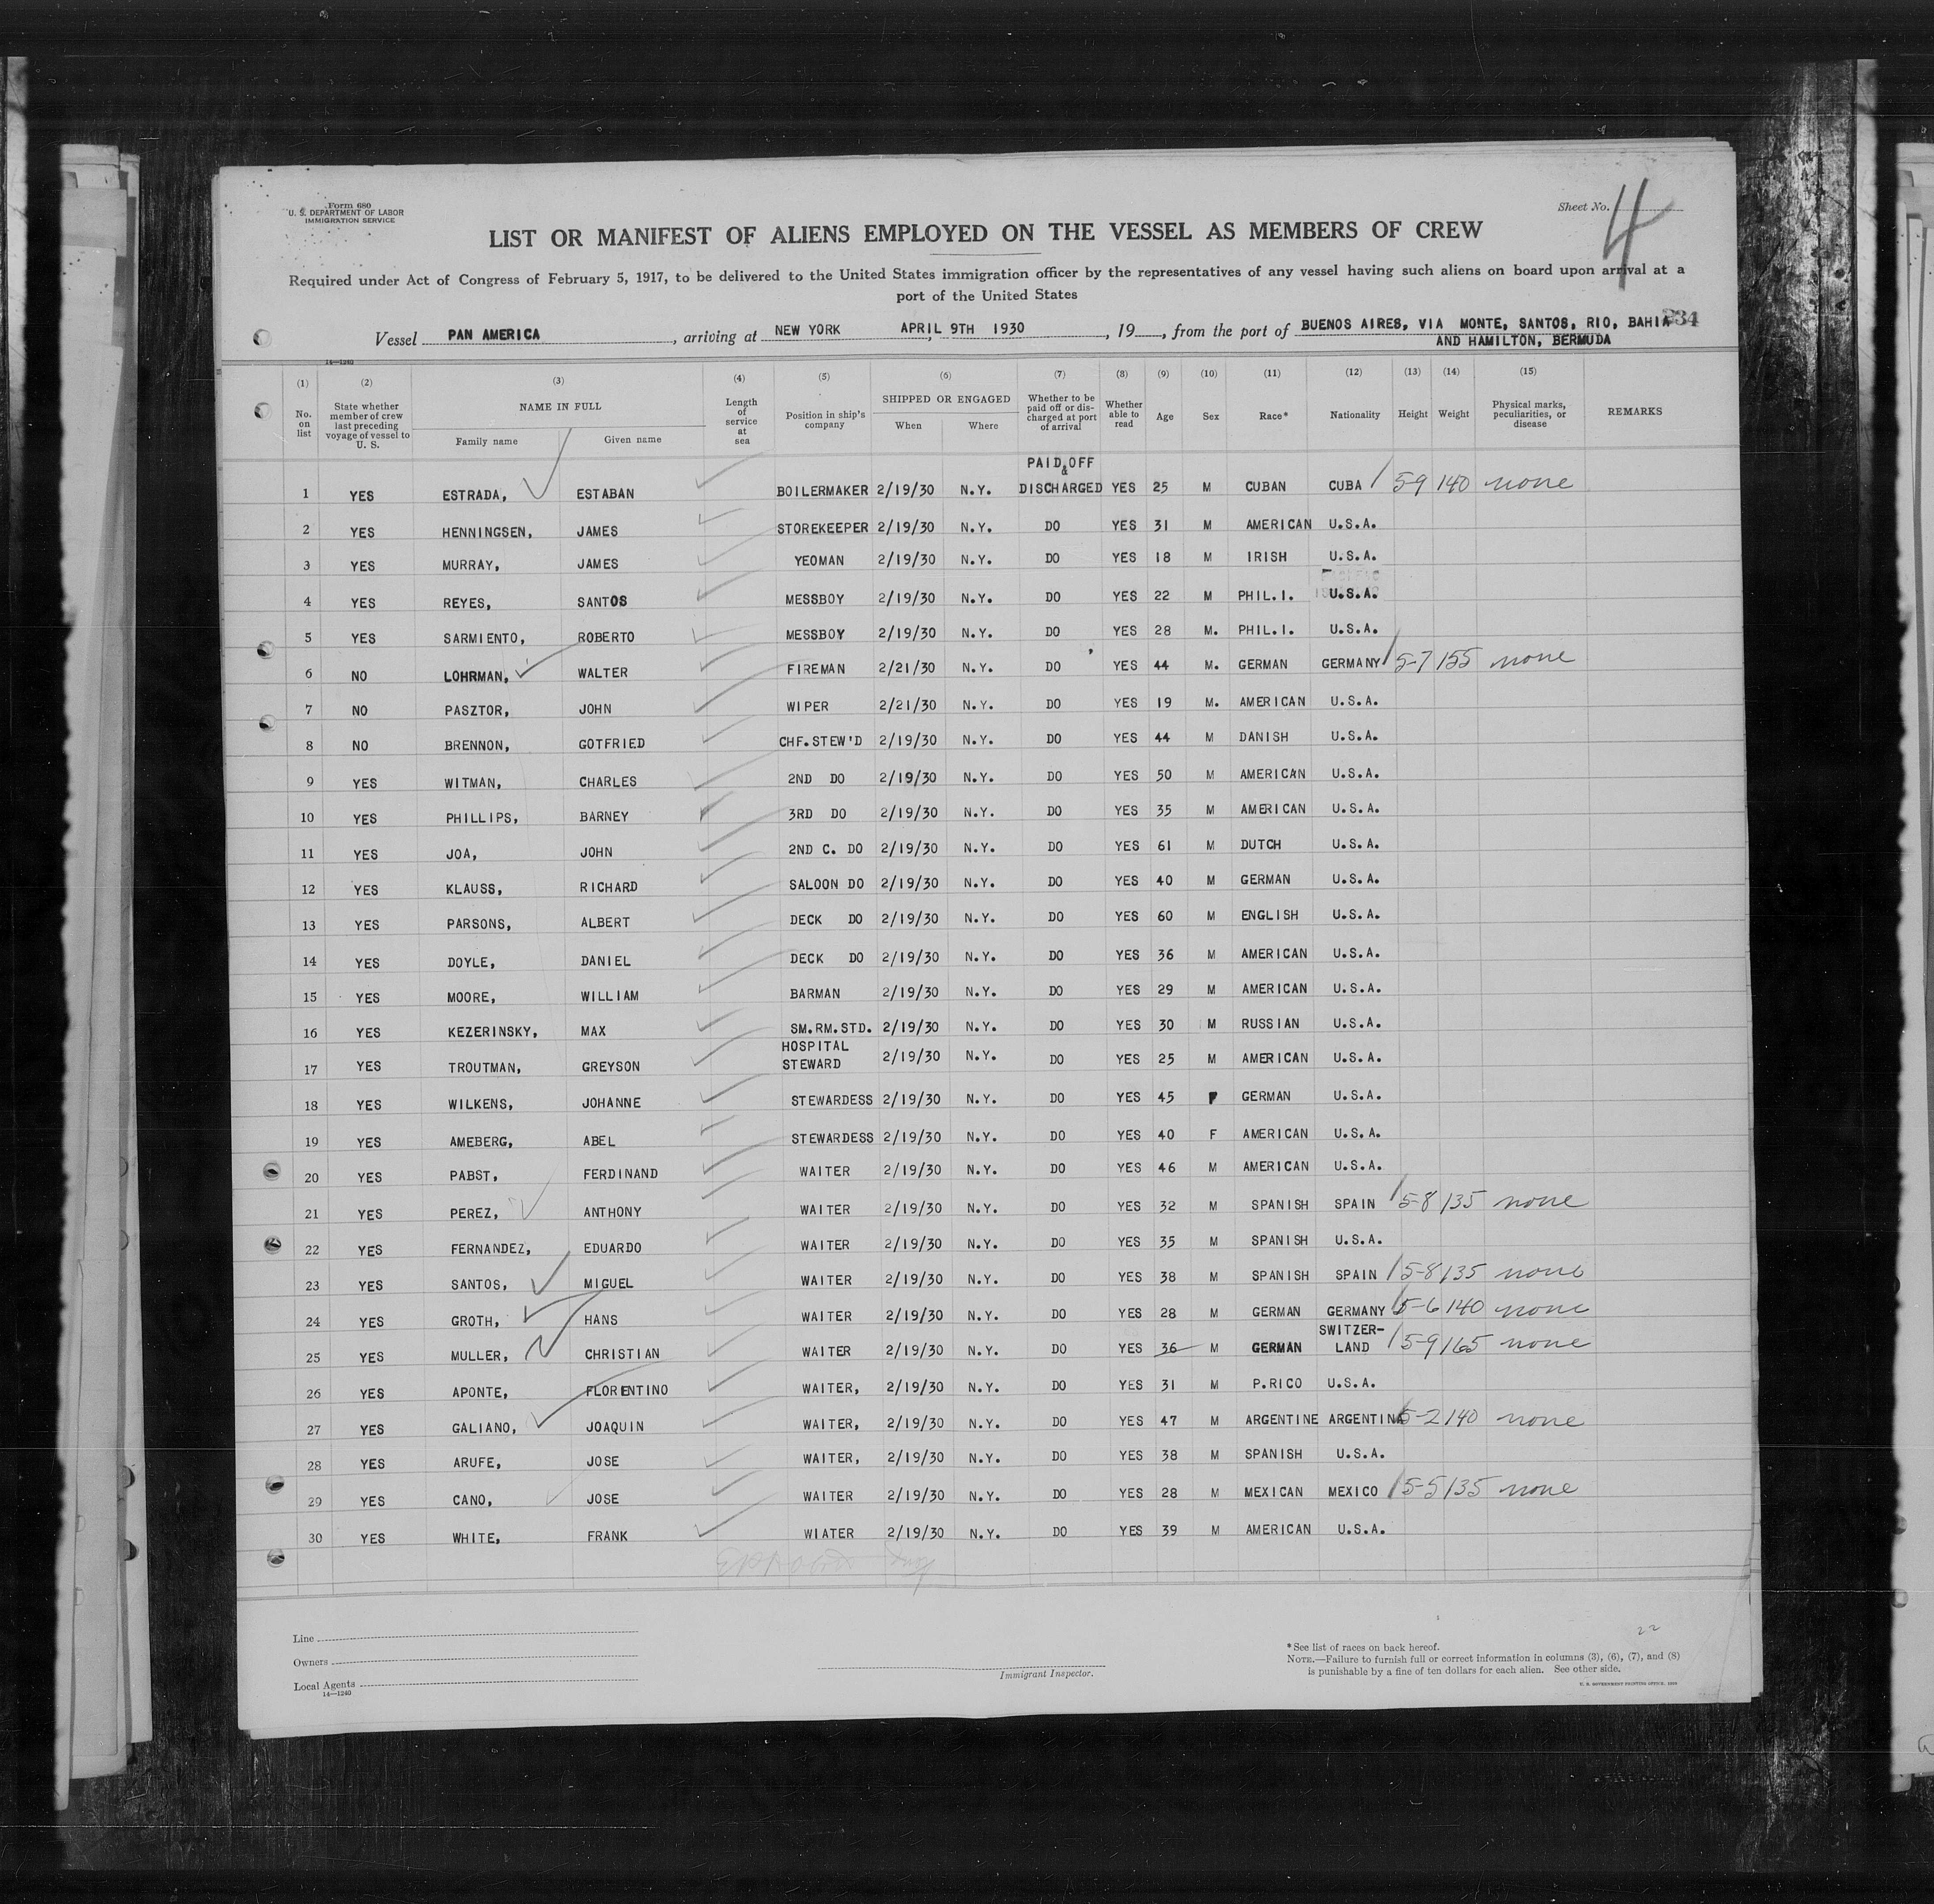 Form 680
U. S. DEPARTMENT OF LABOR
IMMIGRATION SERVICE
Sheet No. 4
LIST OR MANIFEST OF ALIENS EMPLOYED ON THE VESSEL AS MEMBERS OF CREW
Required under Act of Congress of February 5, 1917, to be delivered to the United States immigration officer by the representatives of any vessel having such aliens on board upon arrival at a
port of the United States
Vessel PAN AMERICA, arriving at NEW YORK APRIL 9TH 1930, 19, from the port of BUENOS AIRES, VIA MONTE, SANTOS, RIO, BAHIA
AND HAMILTON, BERMUDA
14—1240
(1) (2) (3) (4) (5) (6) (7) (8) (9) (10) (11) (12) (13) (14) (15)
No. on list State whether member of crew last preceding voyage of vessel to U. S. NAME IN FULL Family name Given name Length of service at sea Position in ship's company SHIPPED OR ENGAGED When Where Whether to be paid off or discharged at port of arrival Whether able to read Age Sex Race* Nationality Height Weight Physical marks, peculiarities, or disease REMARKS
PAID OFF
&
1 YES ESTRADA, ESTABAN BOILERMAKER 2/19/30 N.Y. DISCHARGED YES 25 M CUBAN CUBA 5-9 140 none
2 YES HENNINGSEN, JAMES STOREKEEPER 2/19/30 N.Y. DO YES 31 M AMERICAN U.S.A.
3 YES MURRAY, JAMES YEOMAN 2/19/30 N.Y. DO YES 18 M IRISH U.S.A.
4 YES REYES, SANTOS MESSBOY 2/19/30 N.Y. DO YES 22 M PHIL.I. U.S.A.
5 YES SARMIENTO, ROBERTO MESSBOY 2/19/30 N.Y. DO YES 28 M. PHIL.I. U.S.A.
6 NO LOHRMAN, WALTER FIREMAN 2/21/30 N.Y. DO YES 44 M. GERMAN GERMANY 5-7 155 none
7 NO PASZTOR, JOHN WIPER 2/21/30 N.Y. DO YES 19 M. AMERICAN U.S.A.
8 NO BRENNON, GOTFRIED CHF.STEW'D 2/19/30 N.Y. DO YES 44 M DANISH U.S.A.
9 YES WITMAN, CHARLES 2ND DO 2/19/30 N.Y. DO YES 50 M AMERICAN U.S.A.
10 YES PHILLIPS, BARNEY 3RD DO 2/19/30 N.Y. DO YES 35 M AMERICAN U.S.A.
11 YES JOA, JOHN 2ND C. DO 2/19/30 N.Y. DO YES 61 M DUTCH U.S.A.
12 YES KLAUSS, RICHARD SALOON DO 2/19/30 N.Y. DO YES 40 M GERMAN U.S.A.
13 YES PARSONS, ALBERT DECK DO 2/19/30 N.Y. DO YES 60 M ENGLISH U.S.A.
14 YES DOYLE, DANIEL DECK DO 2/19/30 N.Y. DO YES 36 M AMERICAN U.S.A.
15 YES MOORE, WILLIAM BARMAN 2/19/30 N.Y. DO YES 29 M AMERICAN U.S.A.
16 YES KEZERINSKY, MAX SM.RM.STD. 2/19/30 N.Y. DO YES 30 M RUSSIAN U.S.A.
17 YES TROUTMAN, GREYSON HOSPITAL STEWARD 2/19/30 N.Y. DO YES 25 M AMERICAN U.S.A.
18 YES WILKENS, JOHANNE STEWARDESS 2/19/30 N.Y. DO YES 45 F GERMAN U.S.A.
19 YES AMEBERG, ABEL STEWARDESS 2/19/30 N.Y. DO YES 40 F AMERICAN U.S.A.
20 YES PABST, FERDINAND WAITER 2/19/30 N.Y. DO YES 46 M AMERICAN U.S.A.
21 YES PEREZ, ANTHONY WAITER 2/19/30 N.Y. DO YES 32 M SPANISH SPAIN 5-8 135 none
22 YES FERNANDEZ, EDUARDO WAITER 2/19/30 N.Y. DO YES 35 M SPANISH U.S.A.
23 YES SANTOS, MIGUEL WAITER 2/19/30 N.Y. DO YES 38 M SPANISH SPAIN 5-8 135 none
24 YES GROTH, HANS WAITER 2/19/30 N.Y. DO YES 28 M GERMAN GERMANY 5-6 140 none
25 YES MULLER, CHRISTIAN WAITER 2/19/30 N.Y. DO YES 36 M GERMAN SWITZER-LAND 5-9 165 none
26 YES APONTE, FLORENTINO WAITER, 2/19/30 N.Y. DO YES 31 M P.RICO U.S.A.
27 YES GALIANO, JOAQUIN WAITER, 2/19/30 N.Y. DO YES 47 M ARGENTINE ARGENTINA 5-2 140 none
28 YES ARUFE, JOSE WAITER, 2/19/30 N.Y. DO YES 38 M SPANISH U.S.A.
29 YES CANO, JOSE WAITER 2/19/30 N.Y. DO YES 28 M MEXICAN MEXICO 5-5 135 none
30 YES WHITE, FRANK WIATER 2/19/30 N.Y. DO YES 39 M AMERICAN U.S.A.
22
Line
Owners
Local Agents
14—1240
Immigrant Inspector.
*See list of races on back hereof.
NOTE.—Failure to furnish full or correct information in columns (3), (6), (7), and (8)
is punishable by a fine of ten dollars for each alien. See other side.